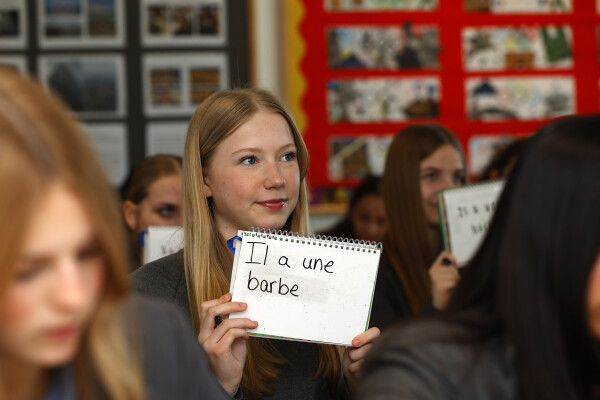 Il a une
barbe